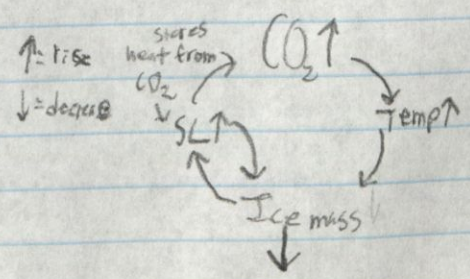 ↑= rise
↓= decrese
stores
heat from
CO₂
CO₂↑
Temp↑
SL↑
Ice mass ↓